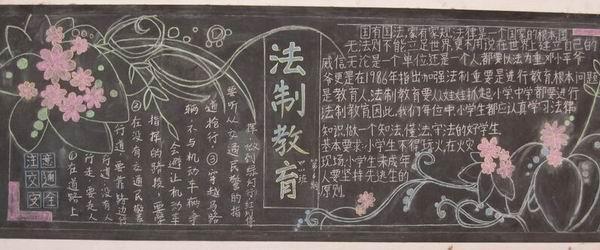 注意交通安全
①在道路上
行走要走人
行道没有人
行道要靠路边行
②在没有交通民警
指挥的路段,要学
会避让机动车
辆不与机动车辆争
道抢行③穿越马路
要听从交通民警的指
挥,做到绿灯行红灯停
法制教育
国有国法,家有家规,法律是一个国家的根本国
无法则不能立足世界,更不用说在世界上建立自己的
威信无论是一个单位还是一个人都要以法为重邓小平爷
爷更是在1986年指出加强法制重要是进行教育根本问题
是教育人法制教育要从娃娃抓起小学中学都要进行
法制教育因此,我们每位中小学生都应认真学习法律
知识做一个知法,懂法,守法的好学生
基本要求:小学生不得玩火,在火灾
现场小学生未成年
人要坚持先逃生的
原则